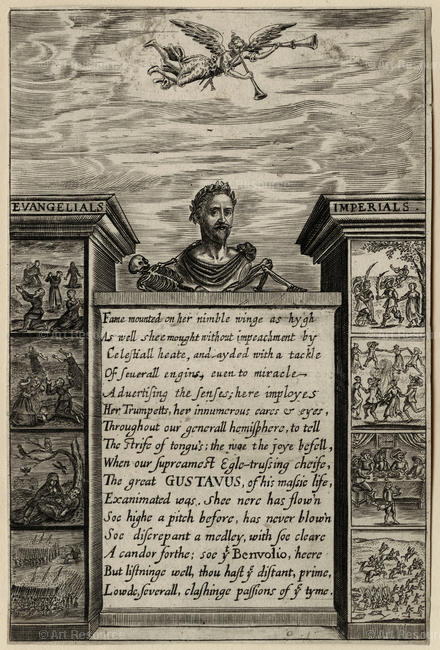 EVANGELIALS
IMPERIALS.
Fame mounted on her nimble winge as hygh
As well shee mought without impeachment by
Celestiall heate, and ayded with a tackle
Of seuerall engins, euen to miracle
Advertising the senses; here imployes
Her Trumpetts, her innumerous eares & eyes,
Throughout our generall hemisphere, to tell
The strife of tongu's; the woe the joye befell,
When our supreamest Egle-trussing cheife,
The great GUSTAVUS, of his massie life,
Exanimated was. Shee nere has flow'n
Soe highe a pitch before, has never blow'n
Soe discrepant a medley, with soe cleare
A candor forthe; soe yt Benvolio, heere
But listninge well, thou hast ye distant, prime,
Lowde, severall, clashinge passions of ye tyme.
© Art Resource